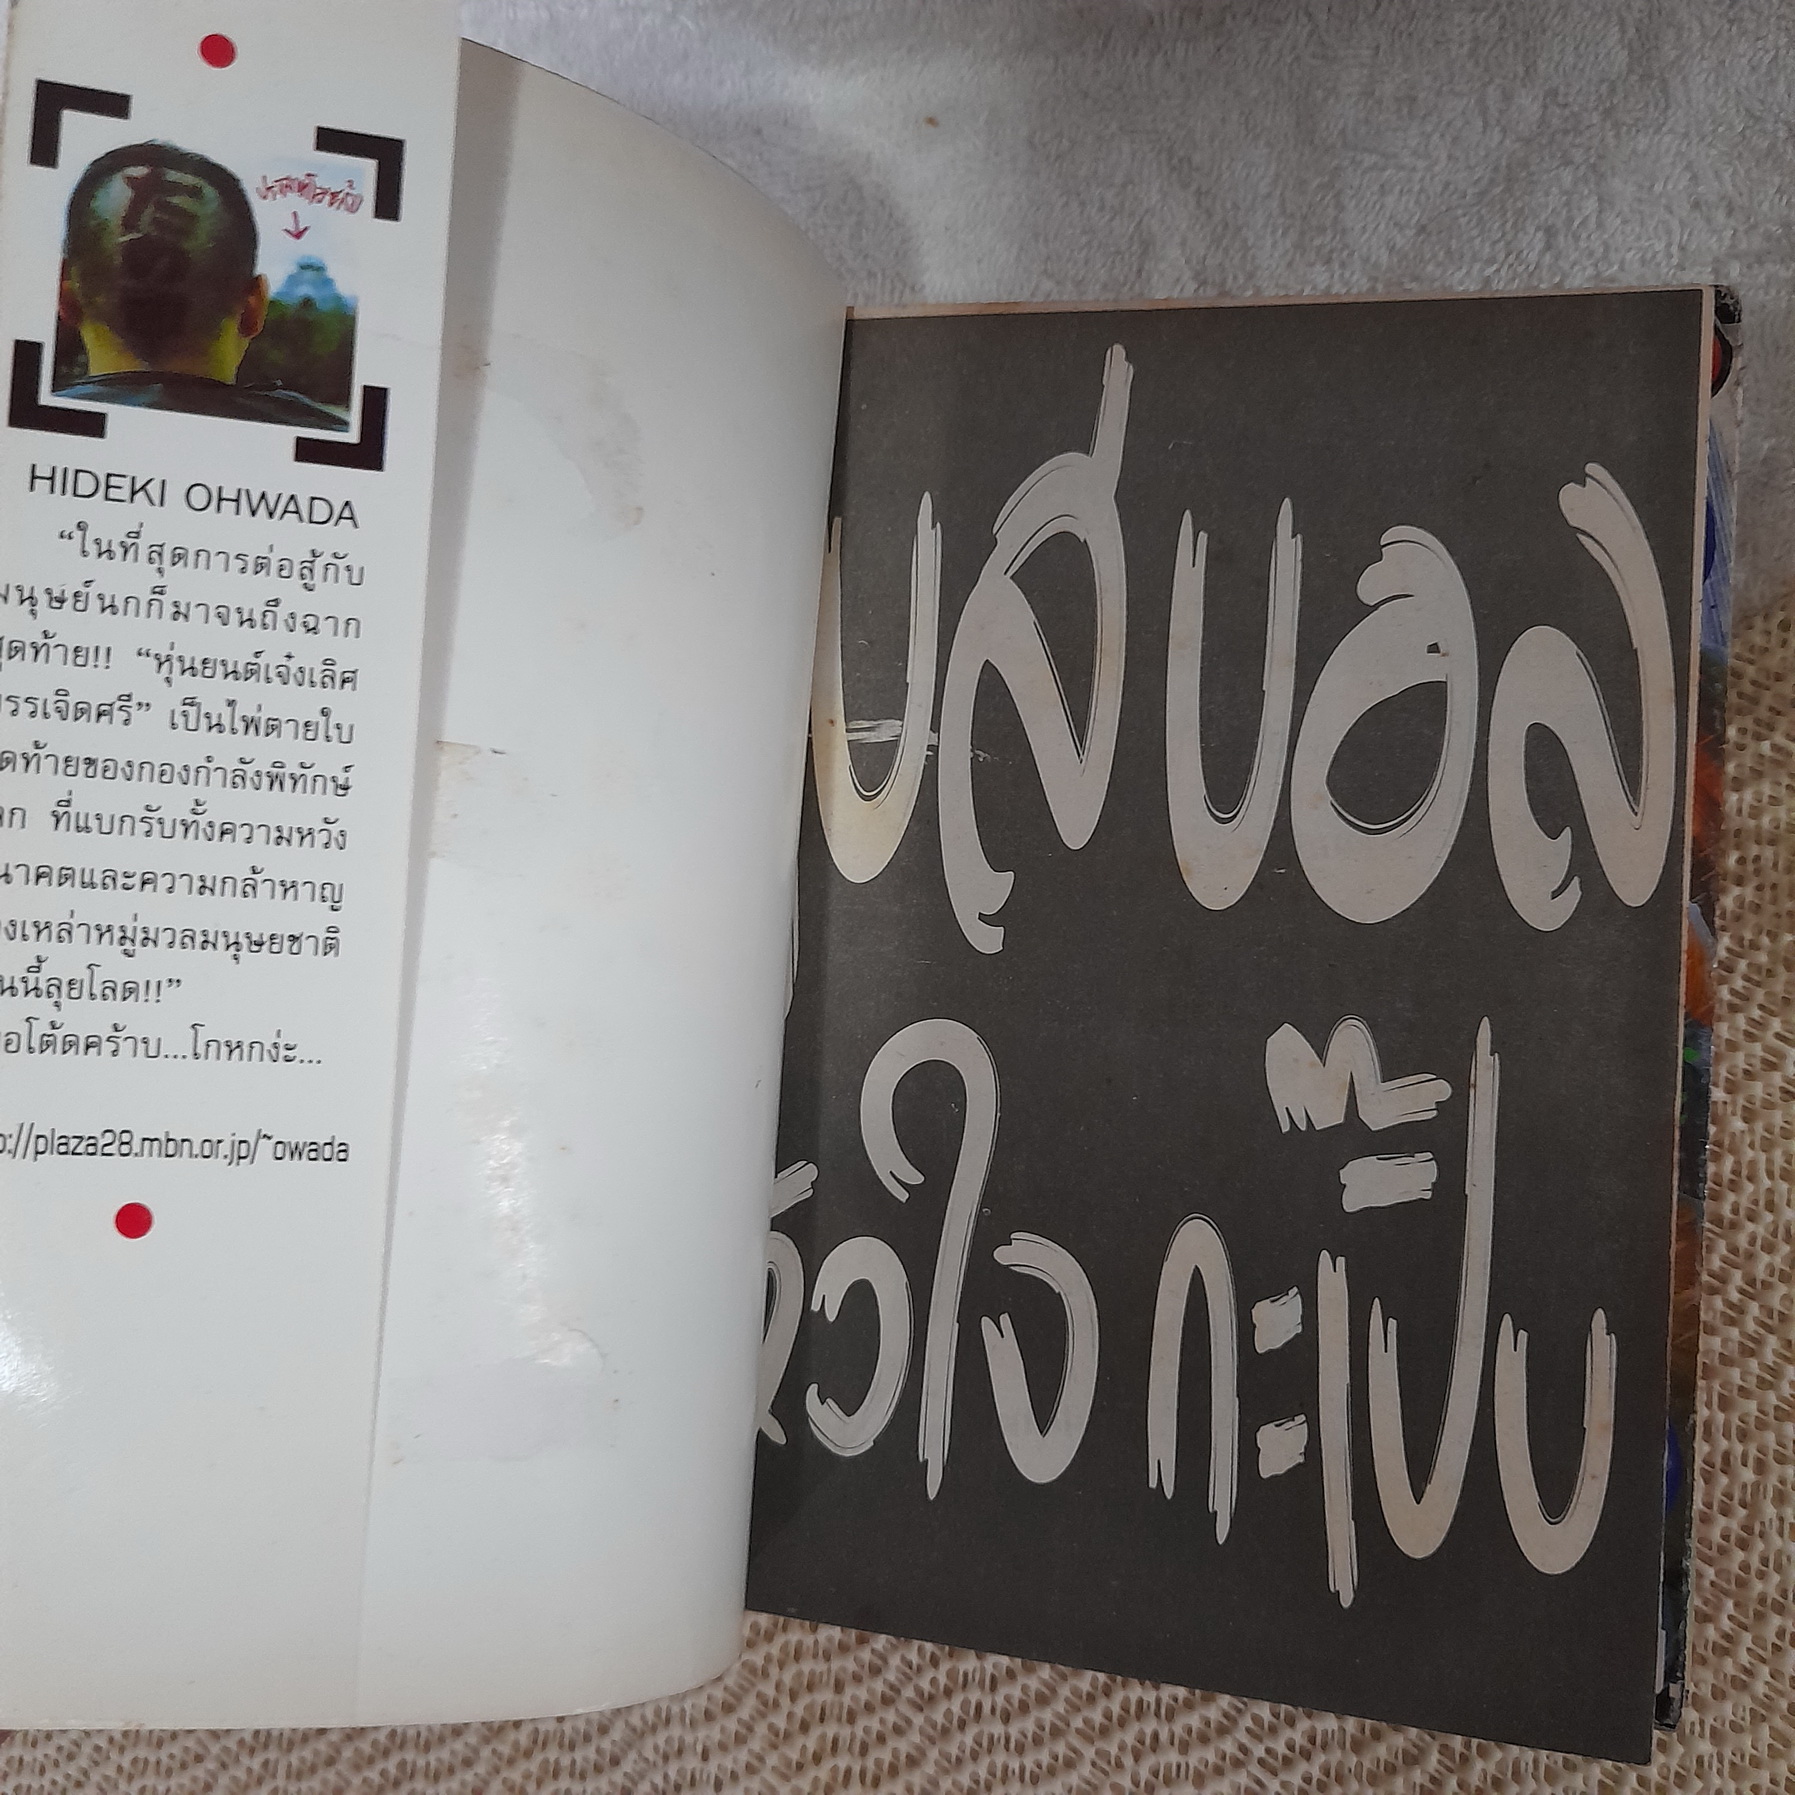 HIDEKI OHWADA
“ในที่สุดการต่อสู้กับ
มนุษย์นกก็มาจนถึงฉาก
สุดท้าย!! “หุ่นยนต์เจ๋งเลิศ
บรรเจิดศรี” เป็นไพ่ตายใบ
ดท้ายของกองกำลังพิทักษ์
ลก ที่แบกรับทั้งความหวัง
นาคตและความกล้าหาญ
งเหล่าหมู่มวลมนุษยชาติ
นนี้ลุยโลด!!”
ขอโต้ดคร้าบ...โกหกง่ะ...
p://plaza28.mbn.or.jp/~owada
บส บอล
หัวใจ กะเปี๊บ